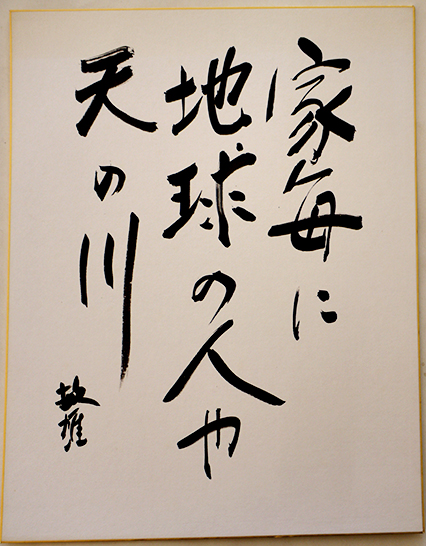 家毎に
地球の人や
天の川
敏雄